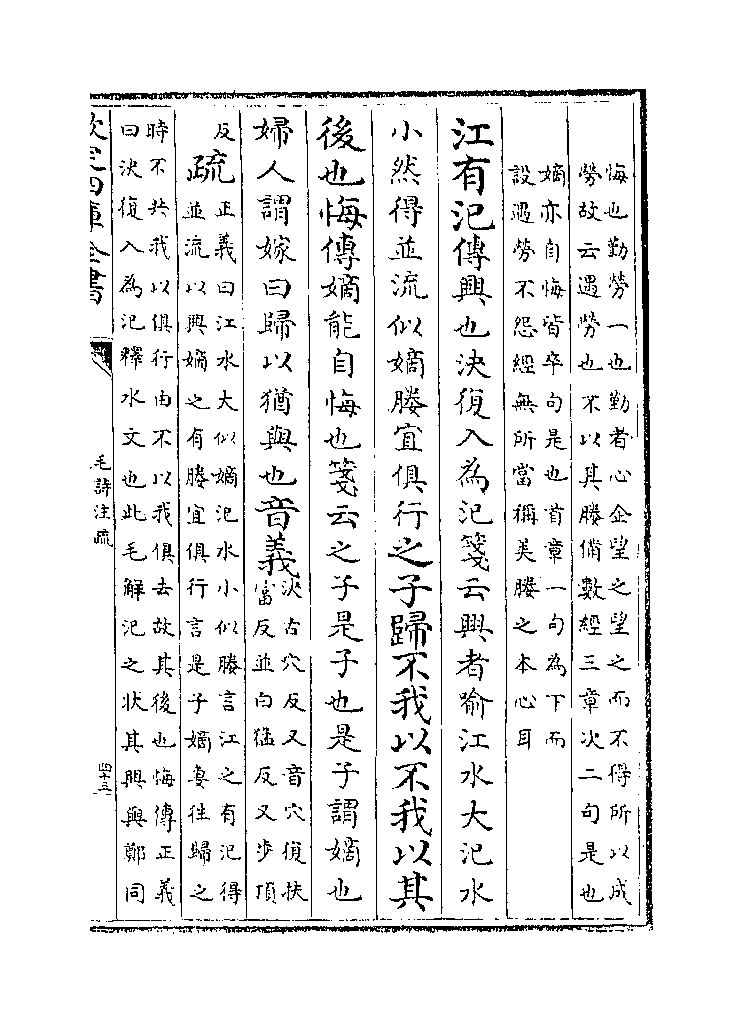 悔也勤勞一也勤者心企望之望之而不得所以成
勞故云遇勞也不以其媵備數經三章次二句是也
嫡亦自悔皆卒句是也首章一句為下而
設遇勞不怨經無所當稱美媵之本心耳
江有汜傳興也決復入為汜箋云興者喻江水大汜水
小然得並流似嫡媵宜俱行之子歸不我以不我以其
後也悔傳嫡能自悔也箋云之子是子也是子謂嫡也
婦人謂嫁曰歸以猶與也音義決古穴反又音穴復扶
富反並白猛反又步頂
反
疏正義曰江水大似嫡汜水小似媵言江之有汜得
並流以興嫡之有媵宜俱行言是子嫡妻往歸之
時不共我以俱行由不以我俱去故其後也悔傳正義
曰決復入為汜釋水文也此毛解汜之状其興與鄭同
欽定四庫全書
毛詩注疏
四十三